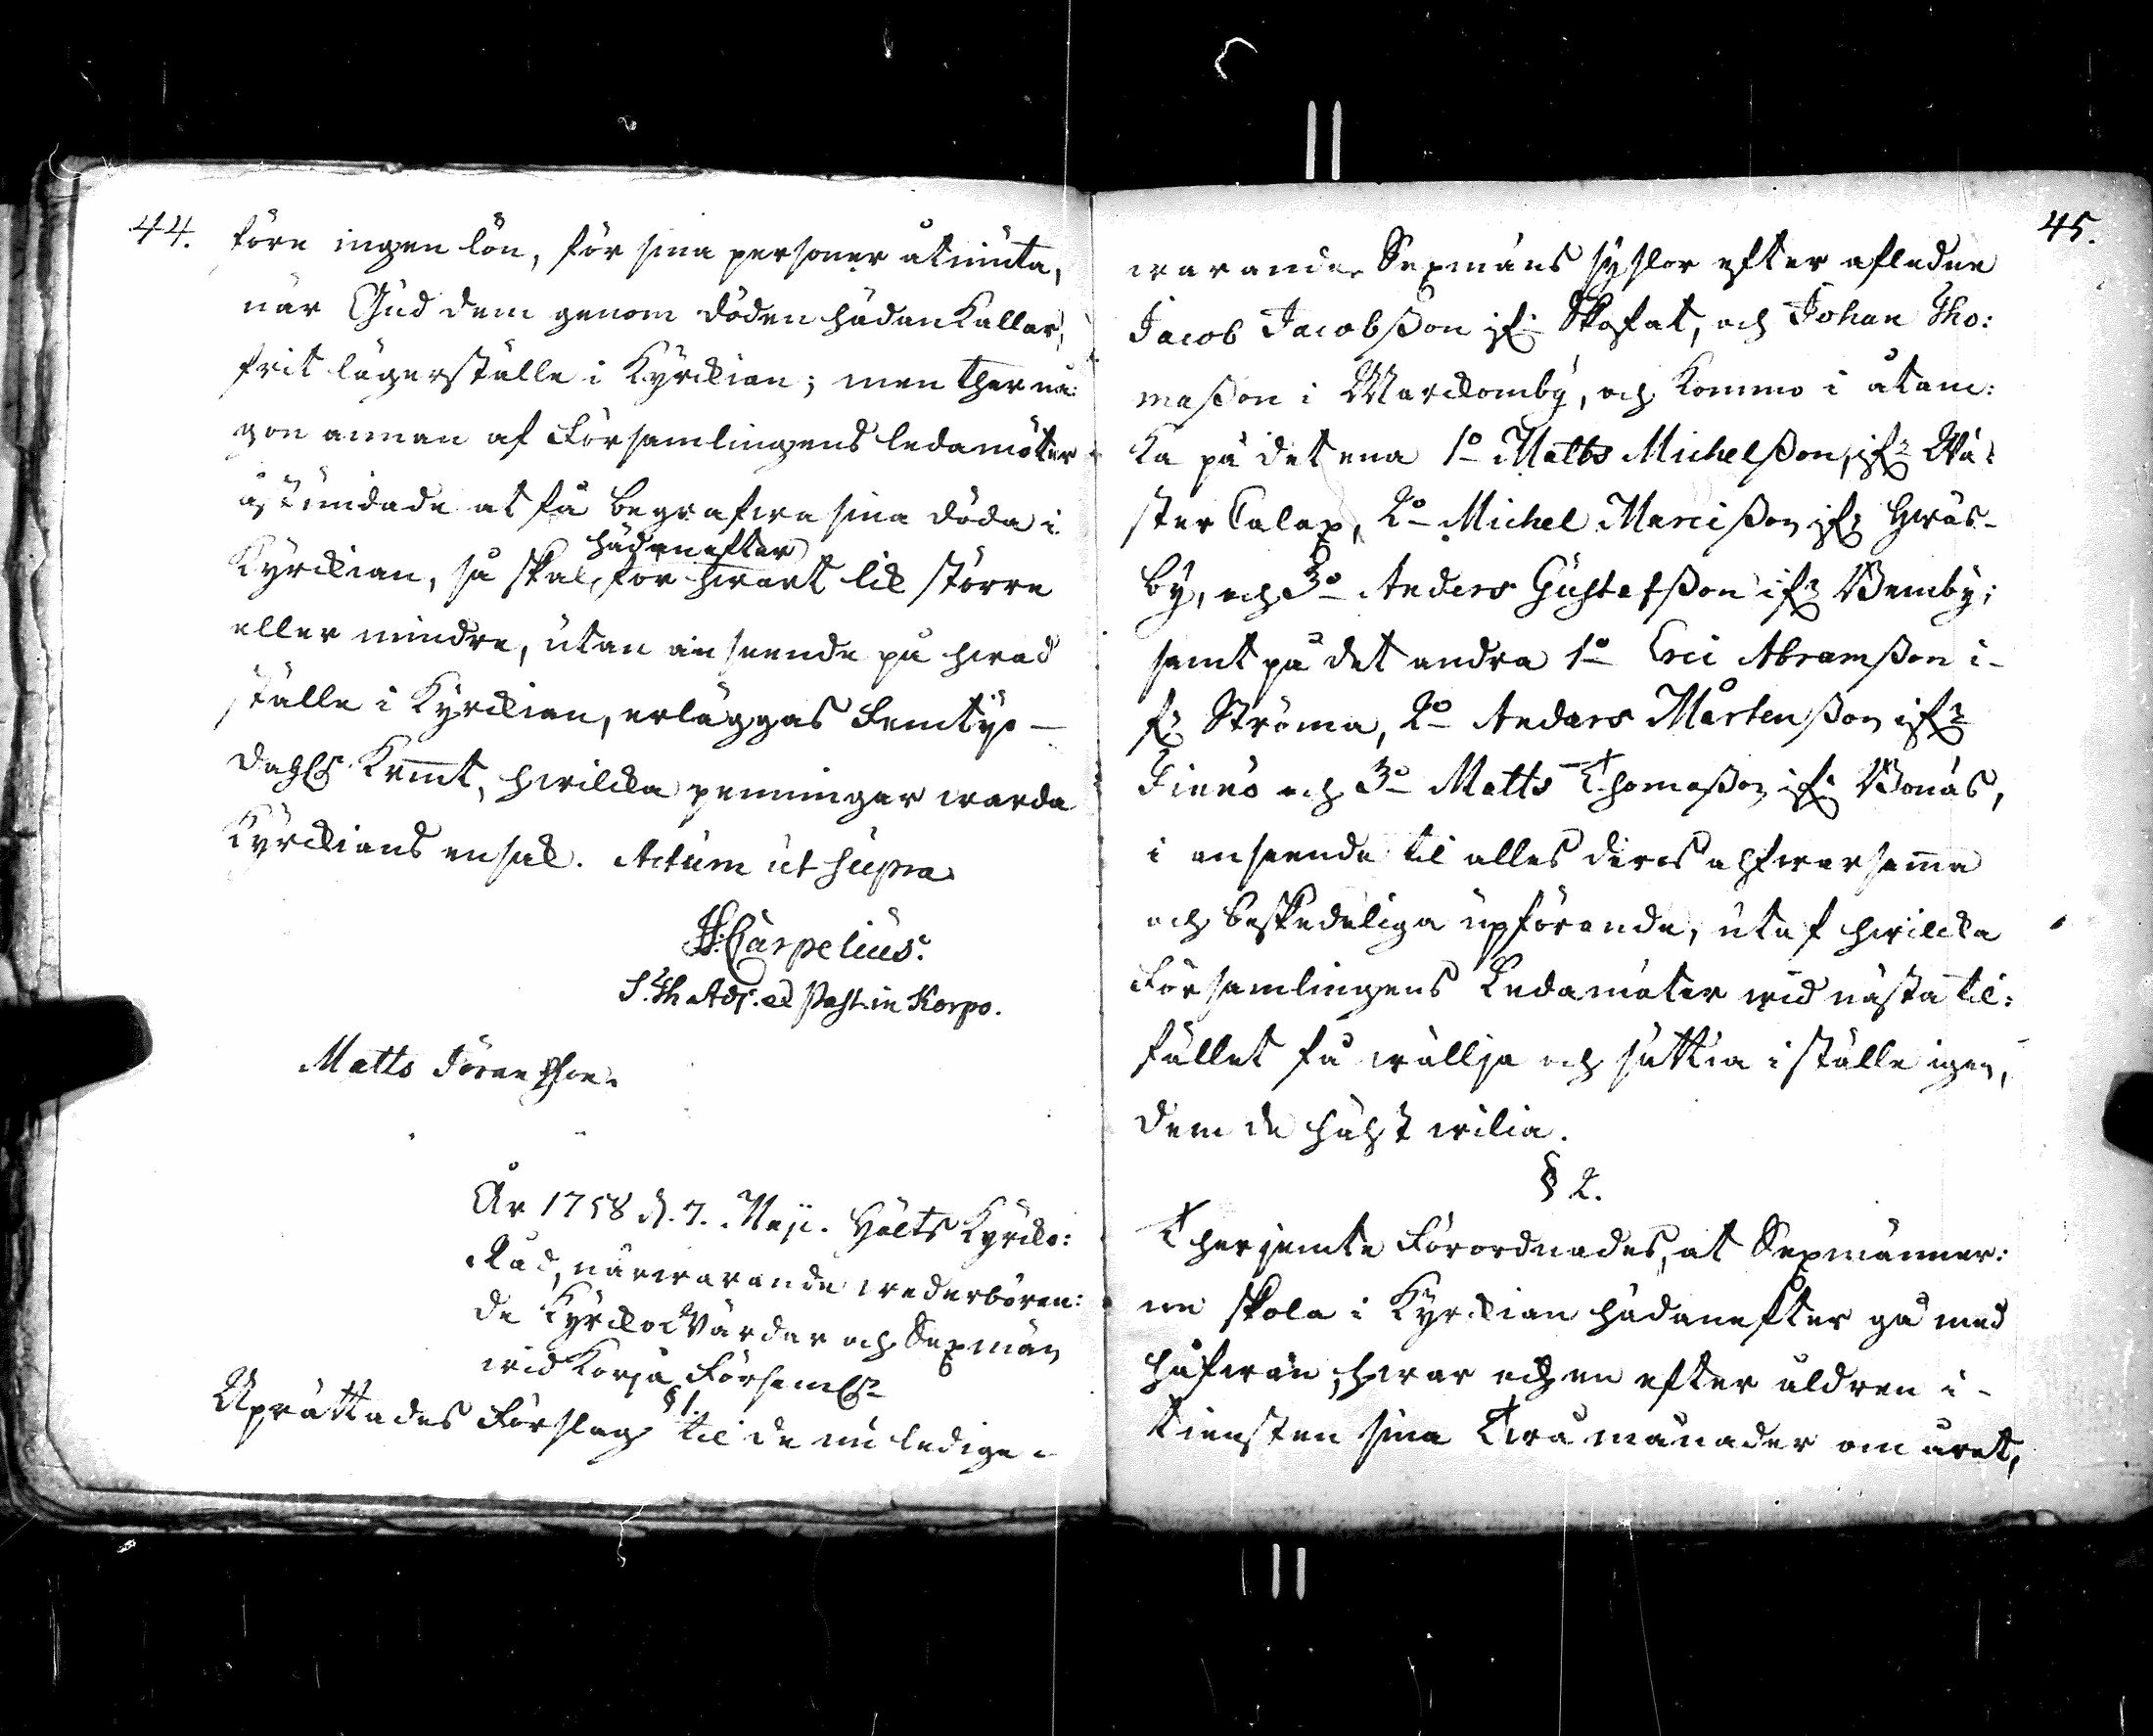 44.
före ingen lön, för sina personer åtniuta,
når Gud dem genom döden hädan kallar,
frit lägerställe i Kyrckian; men ther nå:
gon annan af Församlingens ledamöter
åstundade at få begrafwa sina döda i
hädanefter
Kyrckian, så skal för hwart lik större
eller mindre, utan anseende på hwad
ställe i Kyrckian, erläggas Femtijo
dahlr Kmt, hwilcka penningar warda
Kyrckians ensak. Actum ut supra
H: Carpelius.
S. Th Adj. et Past. in Korpo.
Matts Jöransson.
År 1758 d. 7. Maji. Hölts Kyrcko:
Råd, närwarande wederböran:
de Kyrckowärdar och Sexmän
wid Korpå Förseml:r
§ 1.
Uprättades Förslag til de nu ledige
45.
warande Sexmans syslor efter afledne
Jacob Jacobsson if: Skofat, och Johan Tho:
masson i Marckomby, och Kommo i åtan:
ka på det ena 1o Matts Michelsson, if: Wä:
ster Calax, 2o Michel Marcisson if: Hwäs-
by, och 3o Anders Gustafsson if: Bemby;
samt på det andra 1o Eric Abramsson i-
f: Ströma, 2o Anders Mårtensson if:
Finnö och 3o Matts Thomasson if: Bonäs,
i anseende til alles deras alfwarsamma
och beskedeliga upförande, utaf hwilcka
Församlingens Ledamöter wid nästa til:
fället få wällja och sättia i ställe igen,
dem de hälst wilia.
§ 2.
Therjemte Förordnades, at Sexmänner:
ne skola i Kyrckian hädanefter gå med
håfwan, hwar och en efter åldren i-
tiensten sina Twå månader om året,